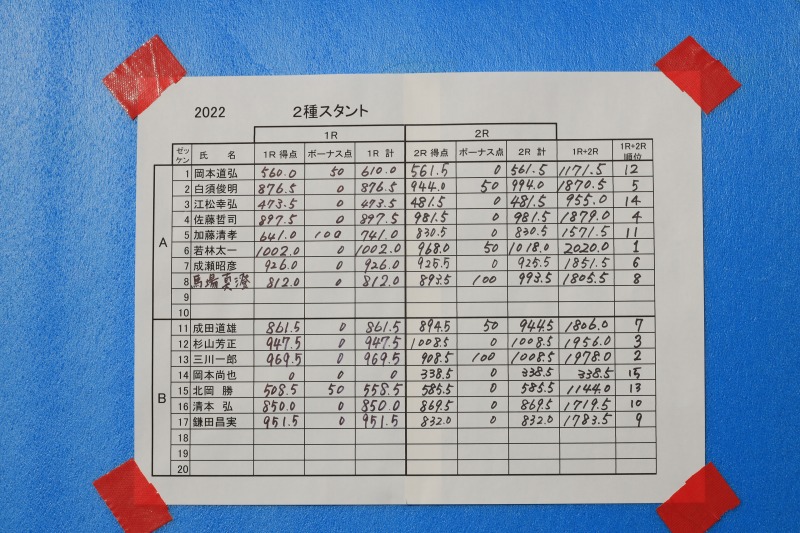 2022 2種スタント
1R 2R
ゼッケン 氏 名 1R 得点 ボーナス点 1R 計 2R 得点 ボーナス点 2R 計 1R+2R 1R+2R 順位
A
1 岡本道弘 560.0 50 610.0 561.5 0 561.5 1171.5 12
2 白須俊明 876.5 0 876.5 944.0 50 994.0 1870.5 5
3 江松幸弘 473.5 0 473.5 481.5 0 481.5 955.0 14
4 佐藤哲司 897.5 0 897.5 981.5 0 981.5 1879.0 4
5 加藤清孝 641.0 100 741.0 830.5 0 830.5 1571.5 11
6 若林太一 1002.0 0 1002.0 968.0 50 1018.0 2020.0 1
7 成瀬昭彦 926.0 0 926.0 925.5 0 925.5 1851.5 6
8 馬場真澄 812.0 0 812.0 893.5 100 993.5 1805.5 8
9
10
B
11 成田道雄 861.5 0 861.5 894.5 50 944.5 1806.0 7
12 杉山芳正 947.5 0 947.5 1008.5 0 1008.5 1956.0 3
13 三川一郎 969.5 0 969.5 908.5 100 1008.5 1978.0 2
14 岡本尚也 0 0 0 338.5 0 338.5 338.5 15
15 北岡 勝 508.5 50 558.5 585.5 0 585.5 1144.0 13
16 清本 弘 850.0 0 850.0 869.5 0 869.5 1719.5 10
17 鎌田昌実 951.5 0 951.5 832.0 0 832.0 1783.5 9
18
19
20